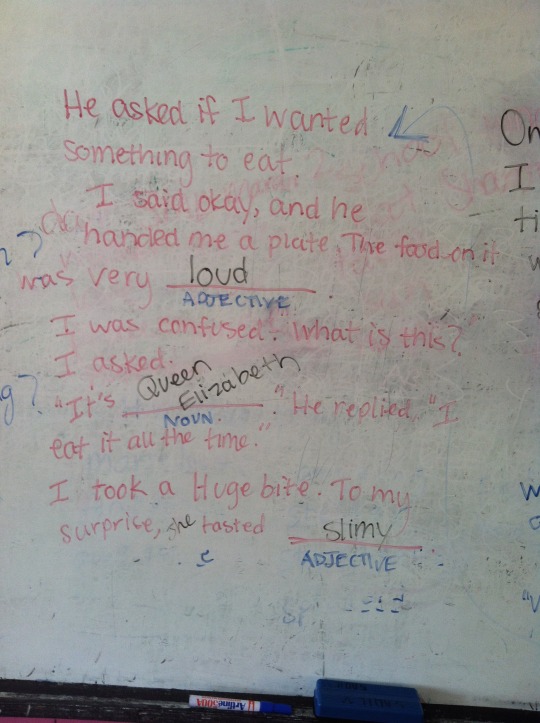 He asked if I wanted
something to eat.
I said okay, and he
handed me a plate. The food on it
was very loud
ADJECTIVE
I was confused. What is this?
I asked.
"It's Queen Elizabeth." He replied, "I
NOUN.
eat it all the time."
I took a Huge bite. To my
surprise, she tasted slimy
ADJECTIVE
On
I
ti
w
g
w
Artline 500A